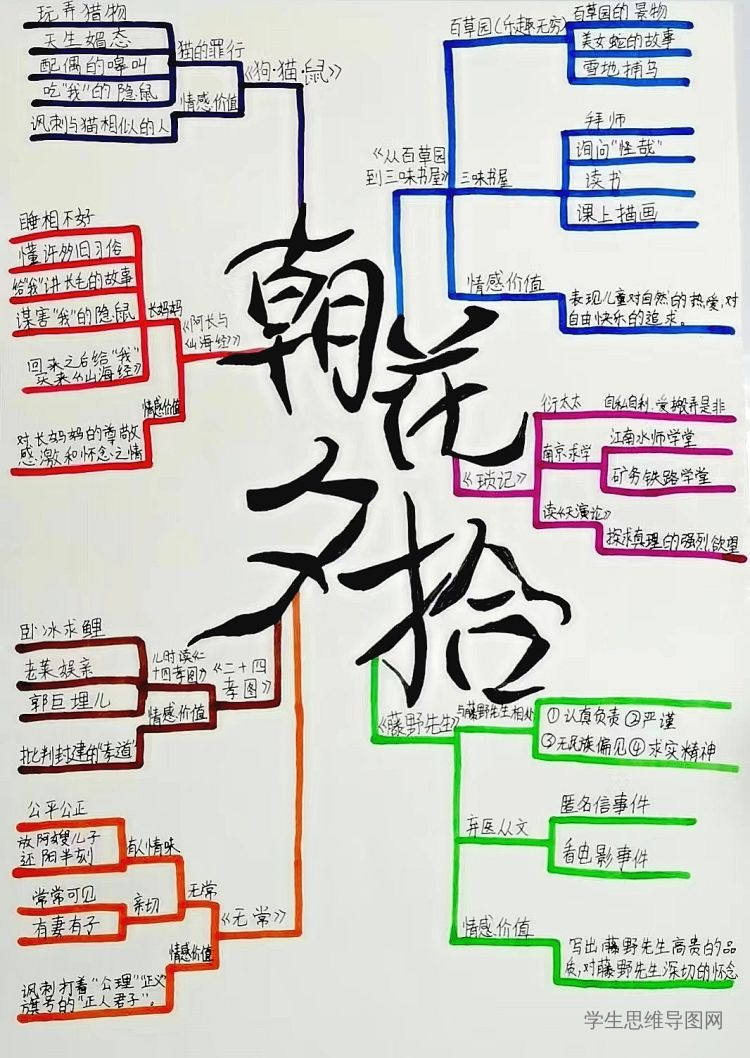 玩弄猎物
天生媚态
配偶的嗥叫
吃"我"的隐鼠
讽刺与猫相似的人
猫的罪行
情感价值
《狗·猫·鼠》
百草园(乐趣无穷)
百草园的景物
美女蛇的故事
雪地捕鸟
《从百草园
到三味书屋》
三味书屋
拜师
询问"怪哉"
读书
课上描画
情感价值
表现儿童对自然的热爱,对
自由快乐的追求。
睡相不好
懂许多旧习俗
给"我"讲长毛的故事
谋害"我"的隐鼠
回来之后给"我"
买来《山海经》
长妈妈
《阿长与
山海经》
情感价值
对长妈妈的尊敬
感激和怀念之情
朝花
夕拾
《琐记》
衍太太
自私自利,爱搬弄是非
南京求学
江南水师学堂
矿务铁路学堂
读《天演论》
探求真理的强烈欲望
卧冰求鲤
老莱娱亲
郭巨埋儿
批判封建的"孝道"
儿时读《二
十四孝图》
情感价值
《二十四
孝图》
《藤野先生》
与藤野先生相处
①认真负责②严谨
③无民族偏见④求实精神
弃医从文
匿名信事件
看电影事件
情感价值
写出藤野先生高贵的品
质,对藤野先生深切的怀念
公平公正
放阿嫂儿子
还阳半刻
有人情味
常常可见
有妻有子
亲切
无常
《无常》
情感价值
讽刺打着"公理""正义"
旗号的"正人君子"。
学生思维导图网